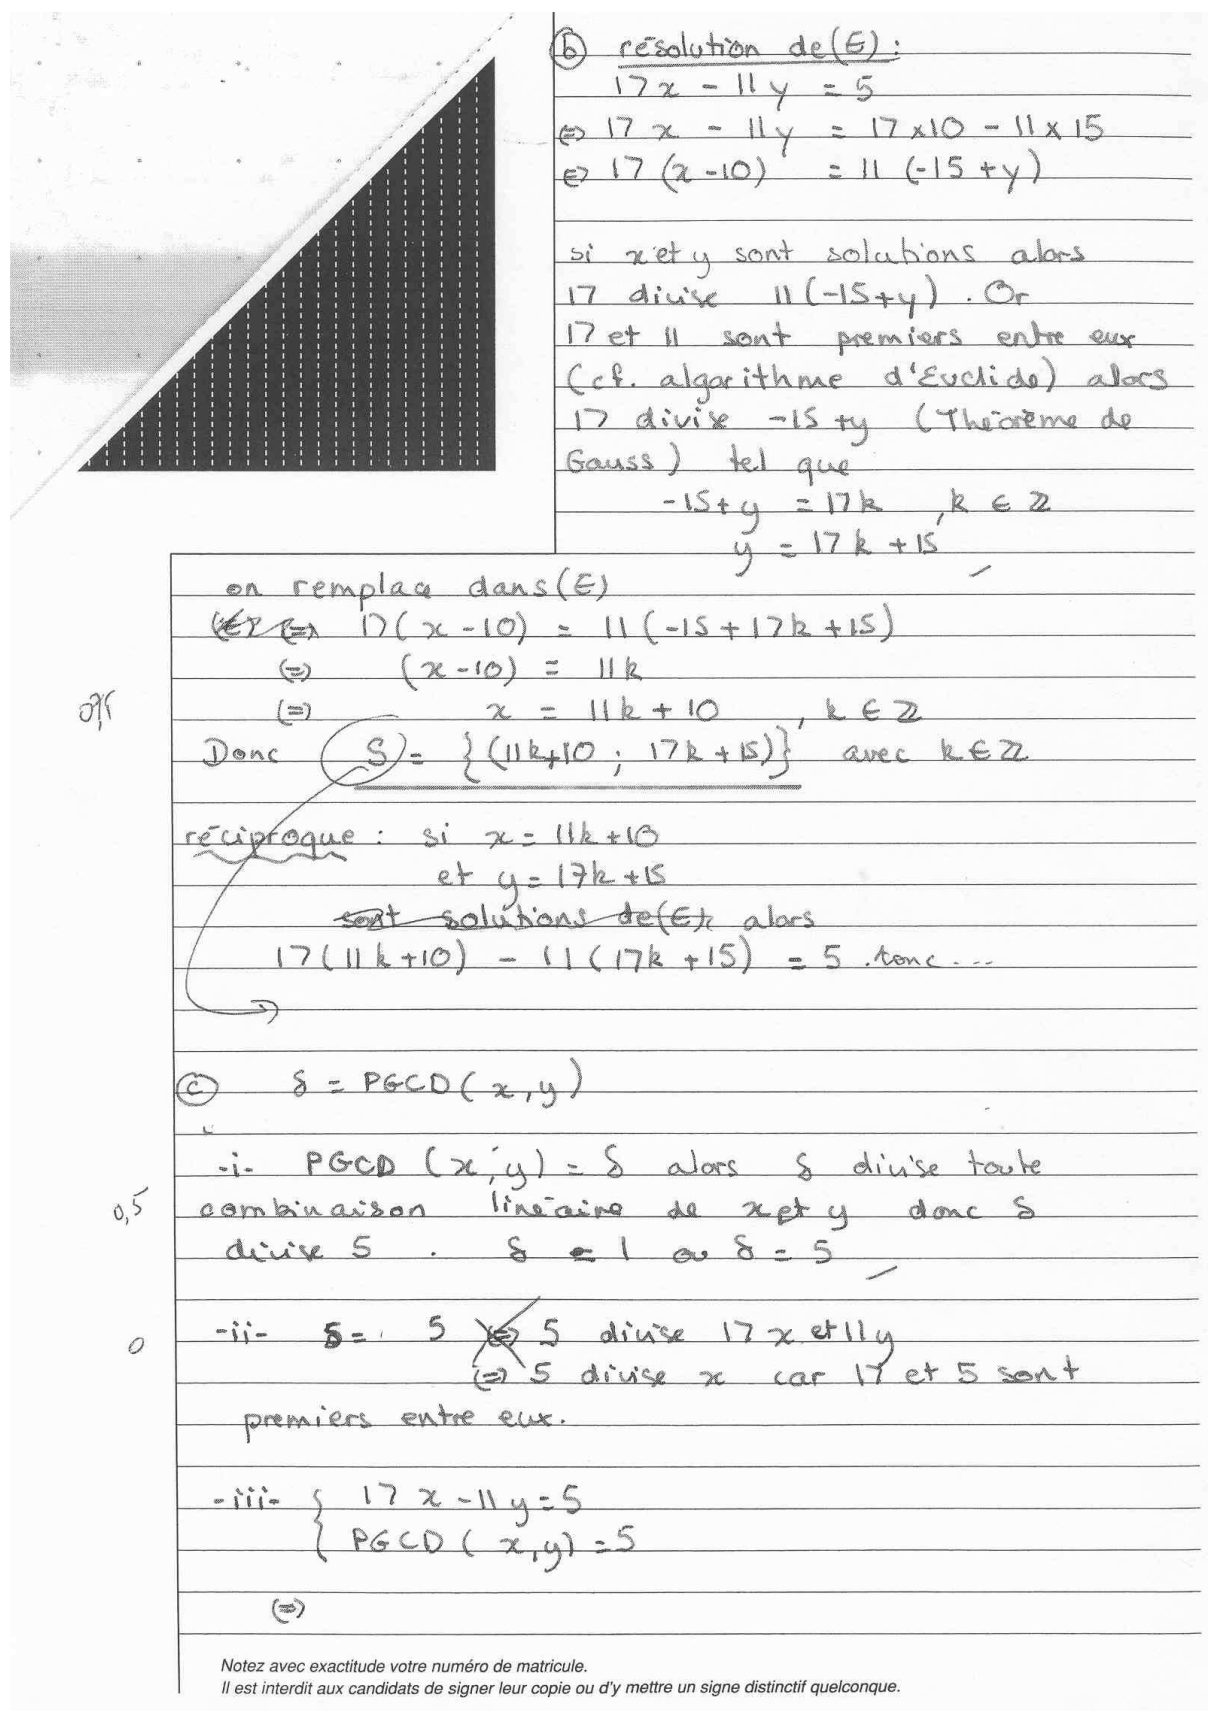 ⓑ résolution de (E) :
17x - 11y = 5
⇔ 17x - 11y = 17×10 - 11×15
⇔ 17(x-10) = 11(-15+y)
si x et y sont solutions alors
17 divise 11(-15+y). Or
17 et 11 sont premiers entre eux
(cf. algorithme d'Euclide) alors
17 divise -15+y (Théorème de
Gauss) tel que
-15+y = 17k, k ∈ ℤ
y = 17k + 15
on remplace dans (E)
⇔ 17(x-10) = 11(-15+17k+15)
⇔ (x-10) = 11k
0,75
⇔ x = 11k + 10, k ∈ ℤ
Donc S = {(11k+10 ; 17k+15)} avec k ∈ ℤ
réciproque : si x = 11k+10
et y = 17k+15
sont solutions de (E). alors
17(11k+10) - 11(17k+15) = 5 . donc ...
ⓒ δ = PGCD(x,y)
-i- PGCD (x,y) = δ alors δ divise toute
0,5 combinaison linéaire de x et y donc δ
divise 5 . δ = 1 ou δ = 5
0 -ii- δ = 5 ⇔ 5 divise 17x et 11y
⇔ 5 divise x car 17 et 5 sont
premiers entre eux.
-iii- { 17x - 11y = 5
PGCD (x,y) = 5
⇔
Notez avec exactitude votre numéro de matricule.
Il est interdit aux candidats de signer leur copie ou d'y mettre un signe distinctif quelconque.